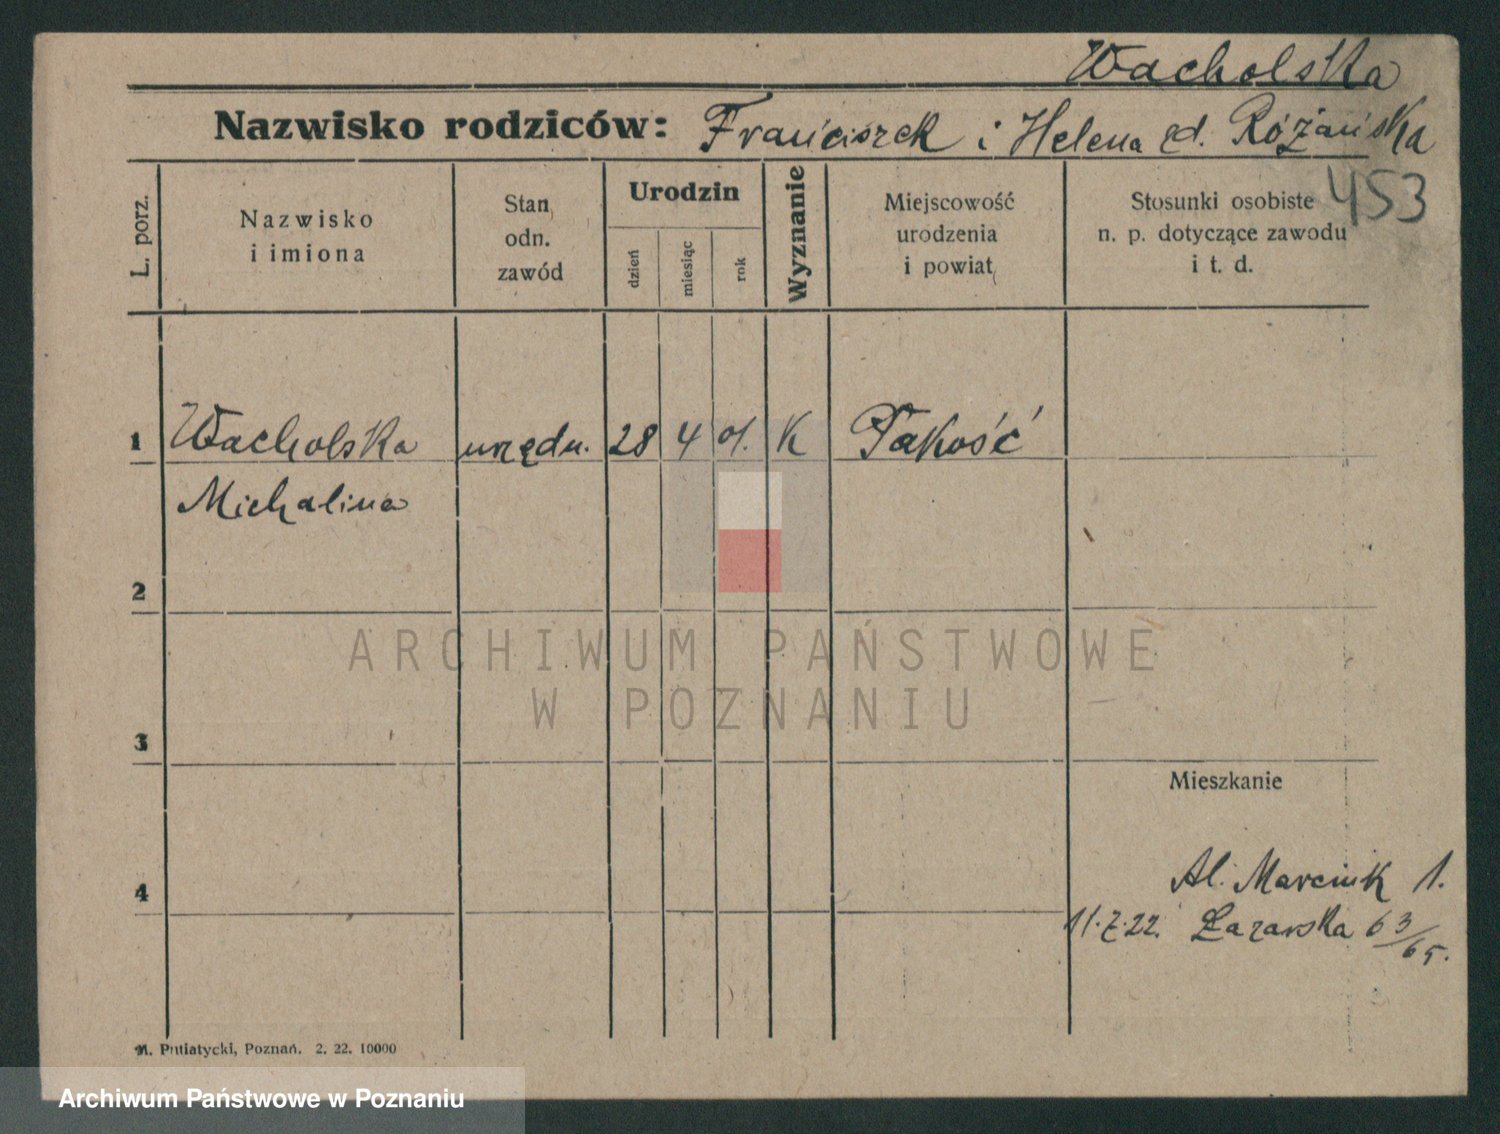 Wacholska
Nazwisko rodziców: Franciszek i Helena zd. Różańska
453
L. porz.
Nazwisko
i imiona
Stan
odn.
zawód
Urodzin
dzień
miesiąc
rok
Wyznanie
Miejscowość
urodzenia
i powiat
Stosunki osobiste
n. p. dotyczące zawodu
i t. d.
1 Wacholska urzędn. 28 4 01. K Pakość
Michalina
2
3
Mieszkanie
4
Al. Marcink 1.
11.7.22. Łazarska 63/65.
M. Putiatycki, Poznań. 2. 22. 10000
ARCHIWUM PAŃSTWOWE
W POZNANIU
Archiwum Państwowe w Poznaniu